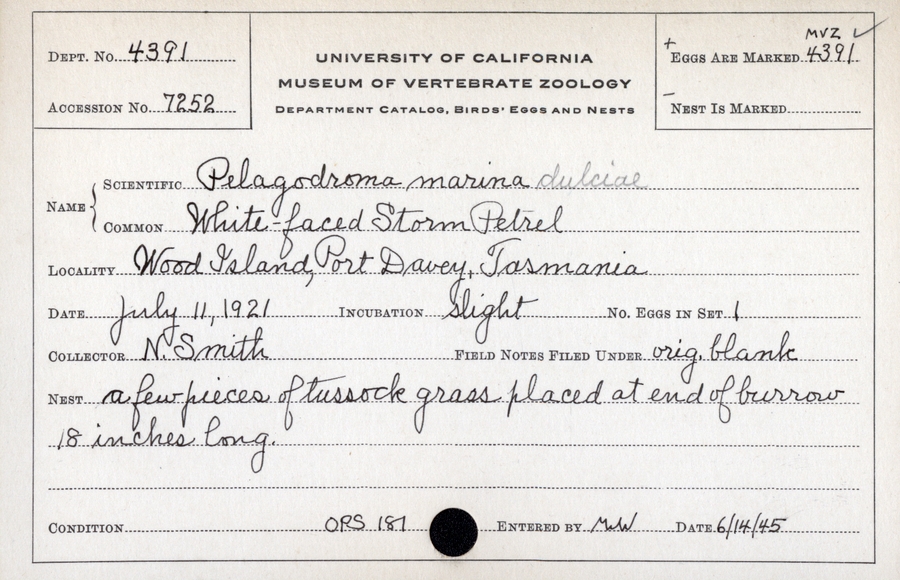 MVZ ✓
Dept. No. 4391
UNIVERSITY OF CALIFORNIA
+ Eggs Are Marked 4391
MUSEUM OF VERTEBRATE ZOOLOGY
Accession No. 7252
Department Catalog, Birds' Eggs and Nests
- Nest Is Marked
Name { Scientific Pelagodroma marina dulciae
Common White-faced Storm Petrel
Locality Wood Island, Port Davey, Tasmania
Date July 11, 1921 Incubation slight No. Eggs in Set 1
Collector N. Smith Field Notes Filed Under orig. blank
Nest a few pieces of tussock grass placed at end of burrow
18 inches long.
Condition ORS 187 Entered by MW Date 6/14/45